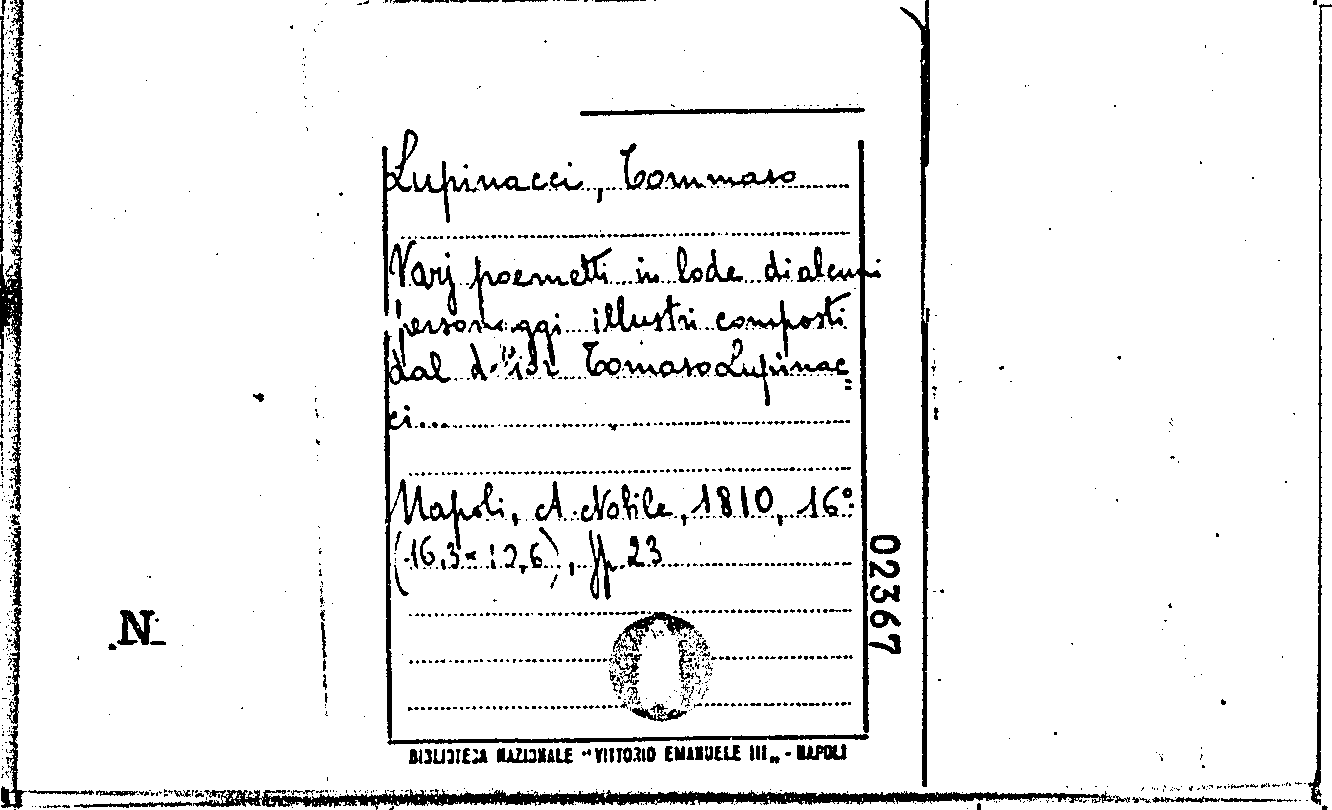 Lupinacci, Tommaso
Varj poemetti in lode di alcuni
personaggi illustri composti
dal Tomaso Lupinac=
ci...
Napoli, A. Nobile, 1810, 16°
(16,3 × 10,6), pp. 23
02367
N
BIBLIOTECA NAZIONALE "VITTORIO EMANUELE III„ - NAPOLI